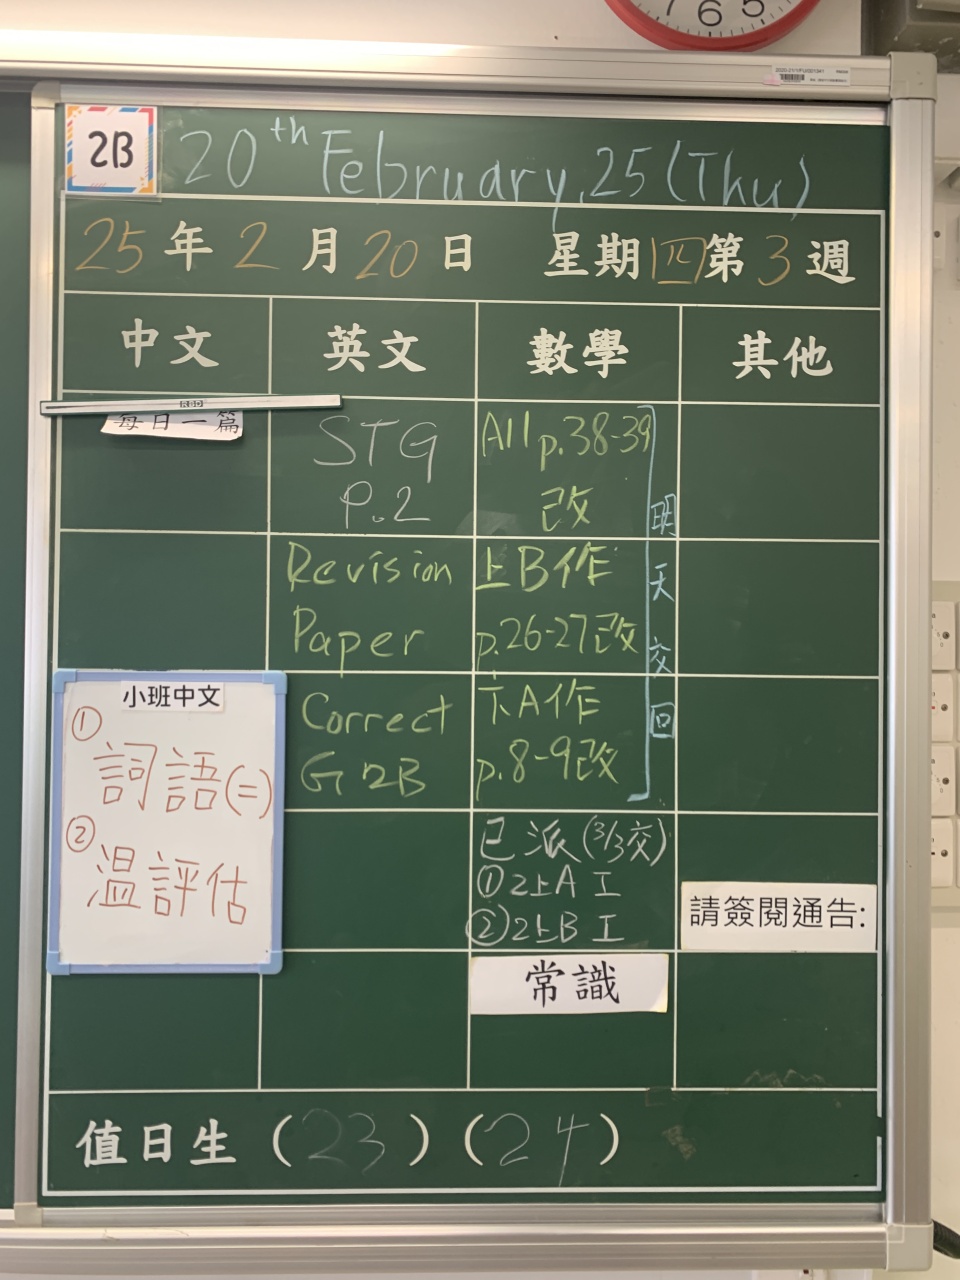 2B
20th February, 25 (Thu)
25年2月20日 星期四 第3週
中文 英文 數學 其他
每日一篇
STG
P.2
Revision
Paper
Correct
G2B
All p.38-39
改
上B作
p.26-27改
下A作
p.8-9改
明天交回
已派(3/3交)
①2上A工
②2上B工
常識
請簽閱通告:
小班中文
①
詞語(二)
②
温評估
值日生(23)(24)
RBD
7 6 5